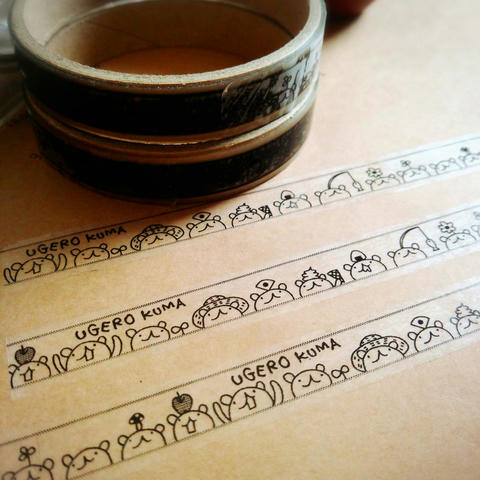 UGERO KUMA
UGERO KUMA
UGERO KUMA